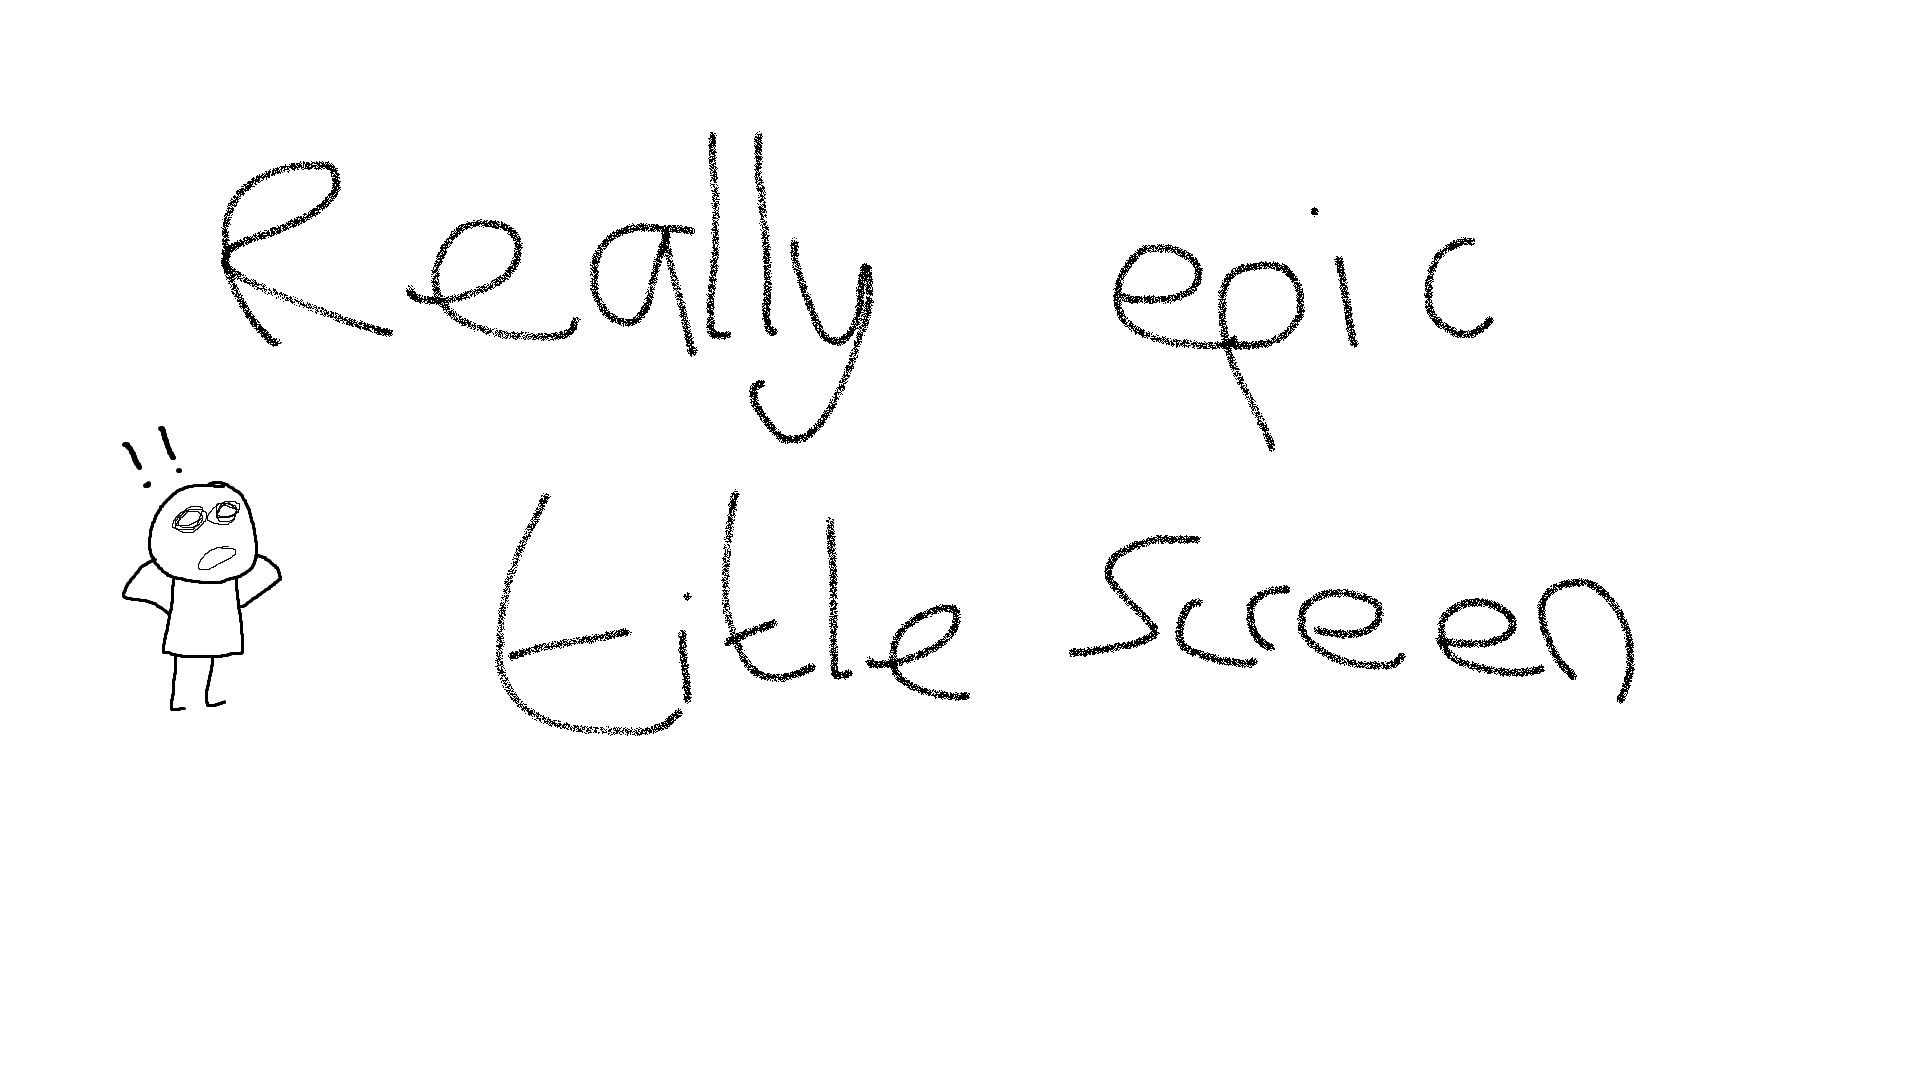 Really epic
!!
title screen